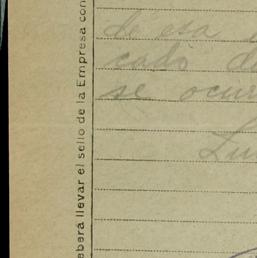 eberá llevar el sello de la Empresa con
de esa
cado de
se ocur
Lui